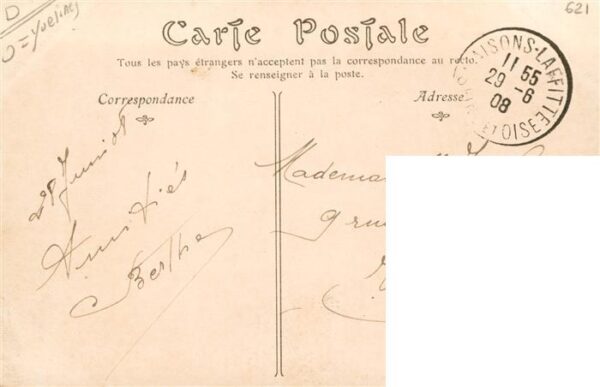 D
621
Carte Postale
Tous les pays étrangers n'acceptent pas la correspondance au recto.
Se renseigner à la poste.
MAISONS-LAFFITTE
11 55
29 -6
08
OISE
Correspondance
Adresse
28 Juin 08
Amitiés
Berthe
9 rue